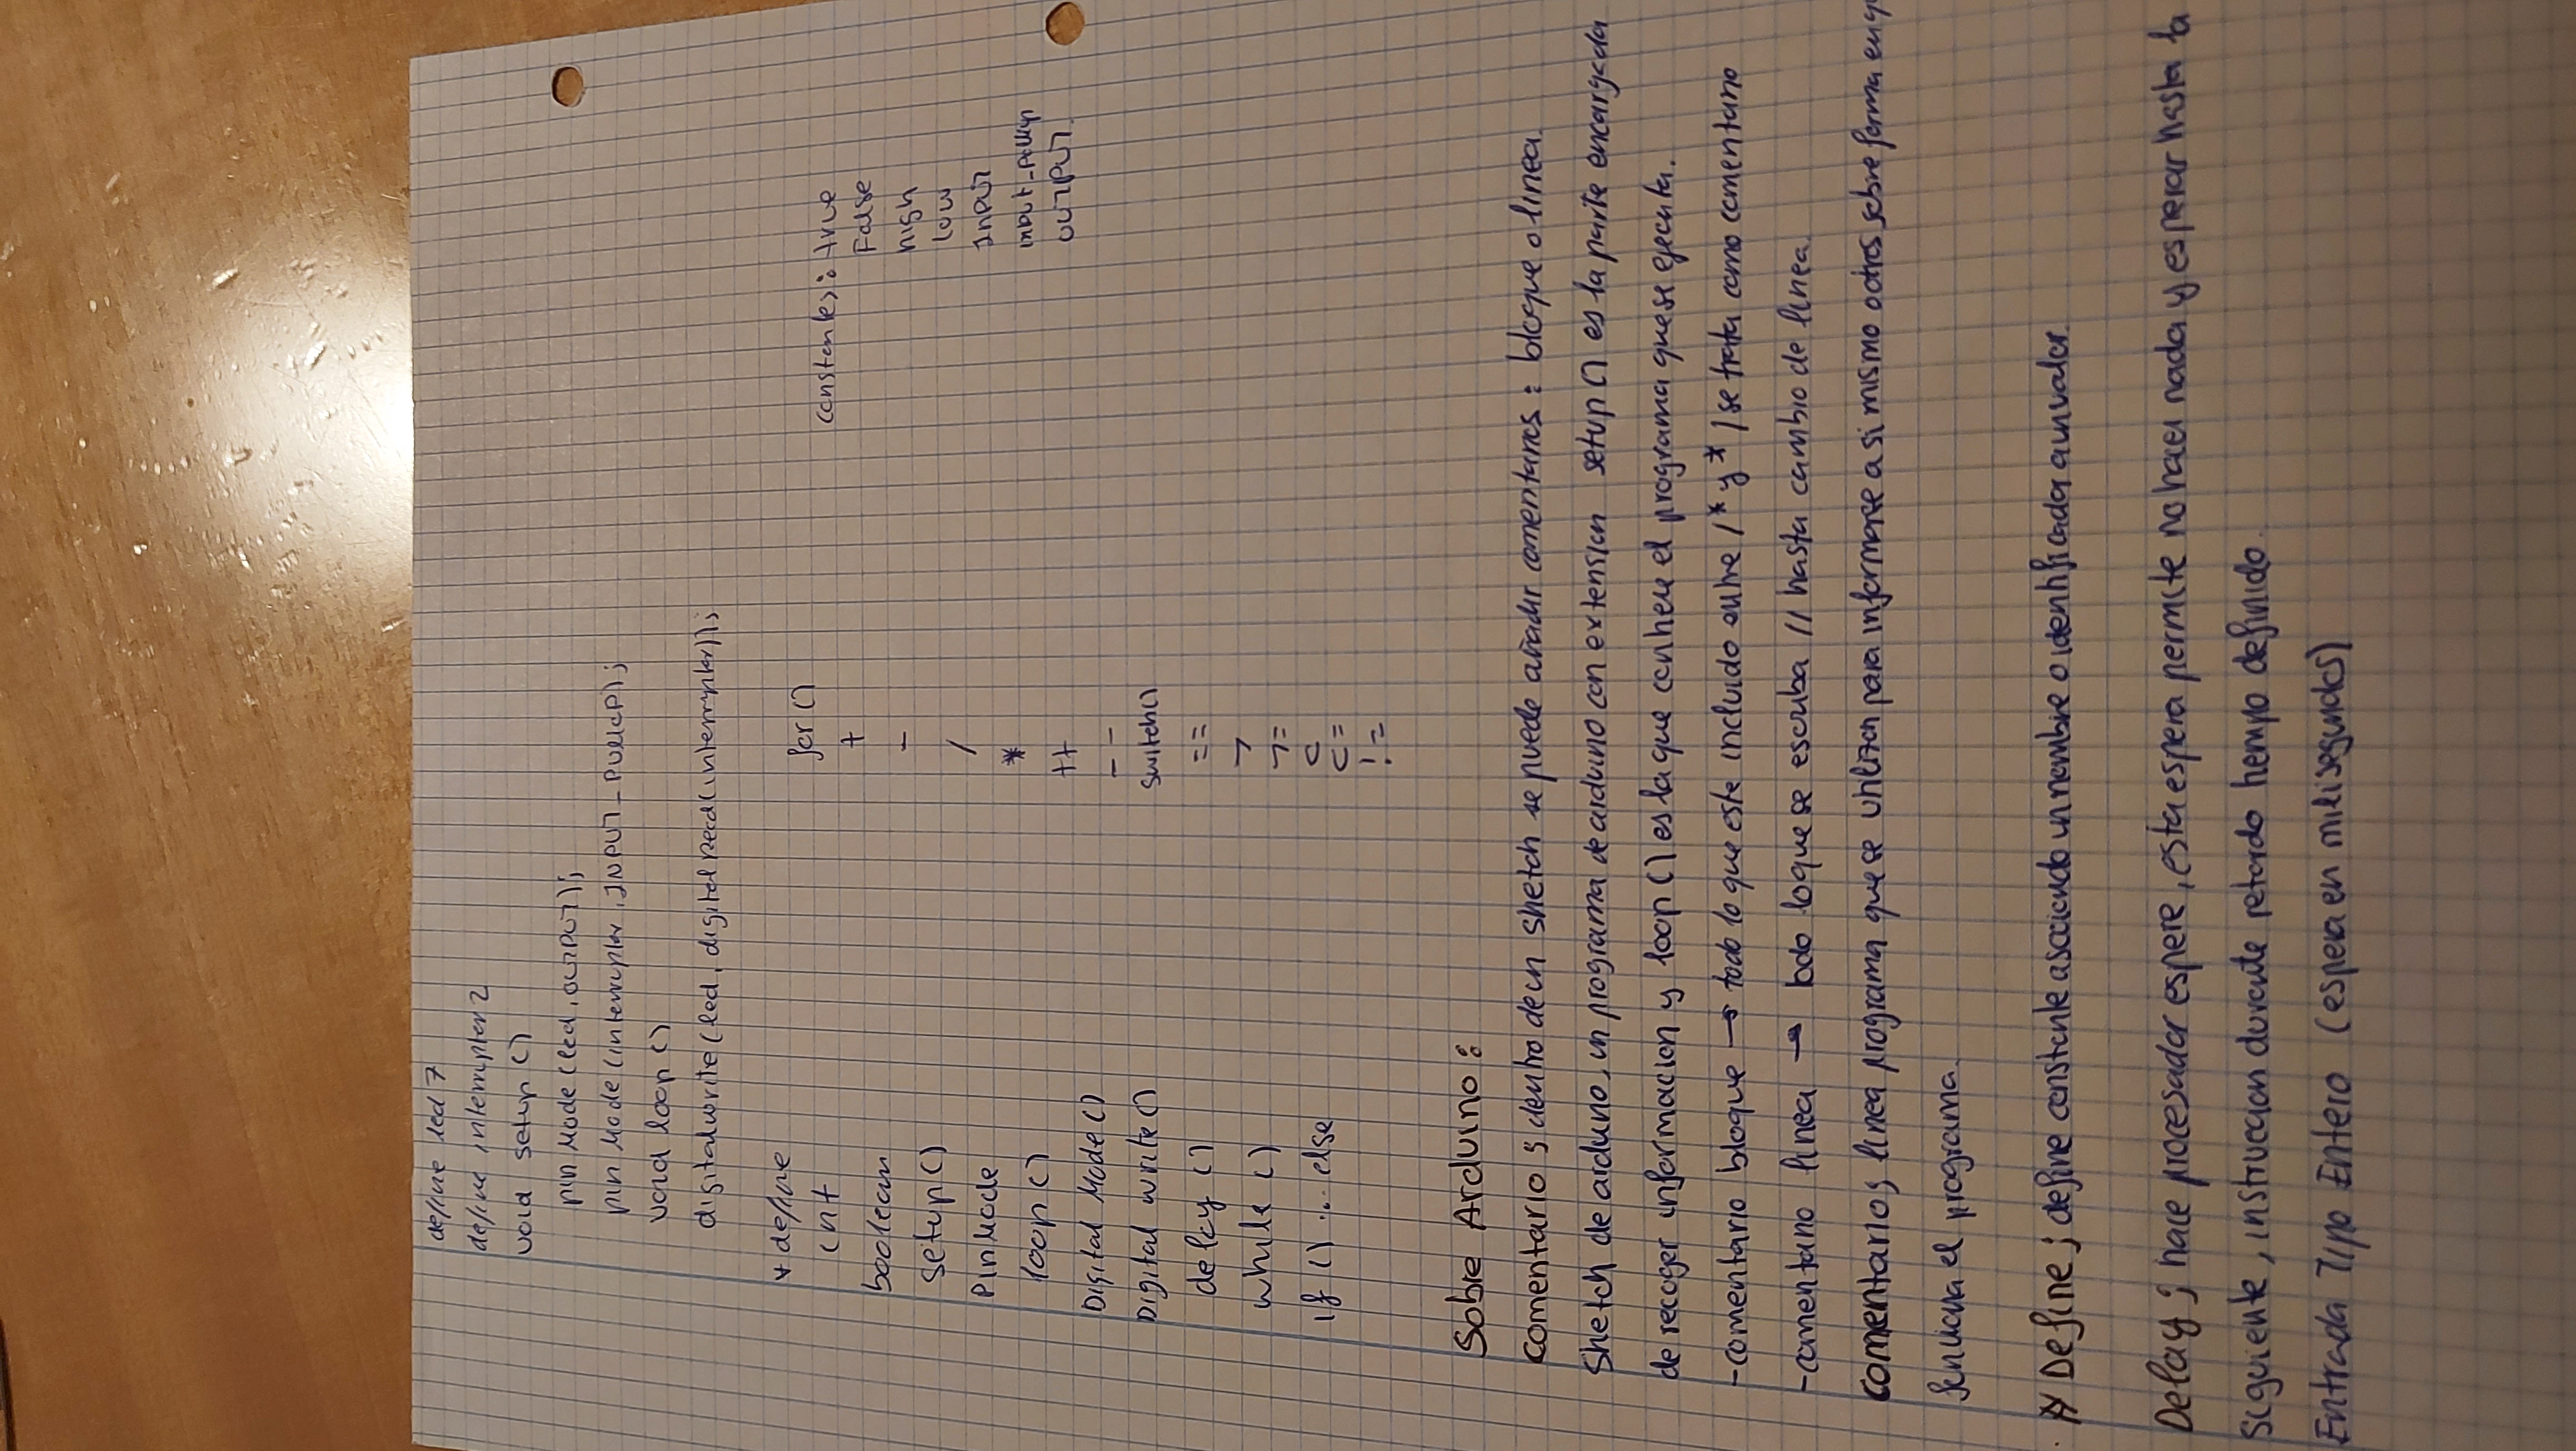 define led 7
define interruptor 2
void setup ()
pinMode (led, OUTPUT);
pinMode (interruptor, INPUT_PULLUP);
void loop ()
digitalwrite (led, digitalRead(interruptor));
* define
int
boolean
setup ()
PinMode
loop ()
Digital Mode ()
Digital write ()
delay ()
while ()
if () ... else
for ()
+
-
/
*
++
--
switch()
==
>
>=
<
<=
!=
constantes: true
False
high
low
INPUT
input_pullup
OUTPUT.
Sobre Arduino:
Comentarios; dentro de un sketch se puede añadir comentarios: bloque o linea.
Sketch de arduino, un programa de arduino con extension setup () es la parte encargada
de recoger informacion y loop () es la que contiene el programa que se ejecuta.
-comentario bloque → todo lo que este incluido entre /* y */ se trata como comentario
-comentario linea → todo lo que se escriba // hasta cambio de linea.
comentarios; linea programa que se utilizan para informarse a si mismo o otros sobre forma en q
funciona el programa.
# Define; define constante asociando un nombre o identificador a un valor.
Delay; hace procesador espere, esta espera permite no hacer nada y esperar hasta la
siguiente, instruccion durante retardo tiempo definido.
Entrada Tipo Entero (espera en milisegundos)